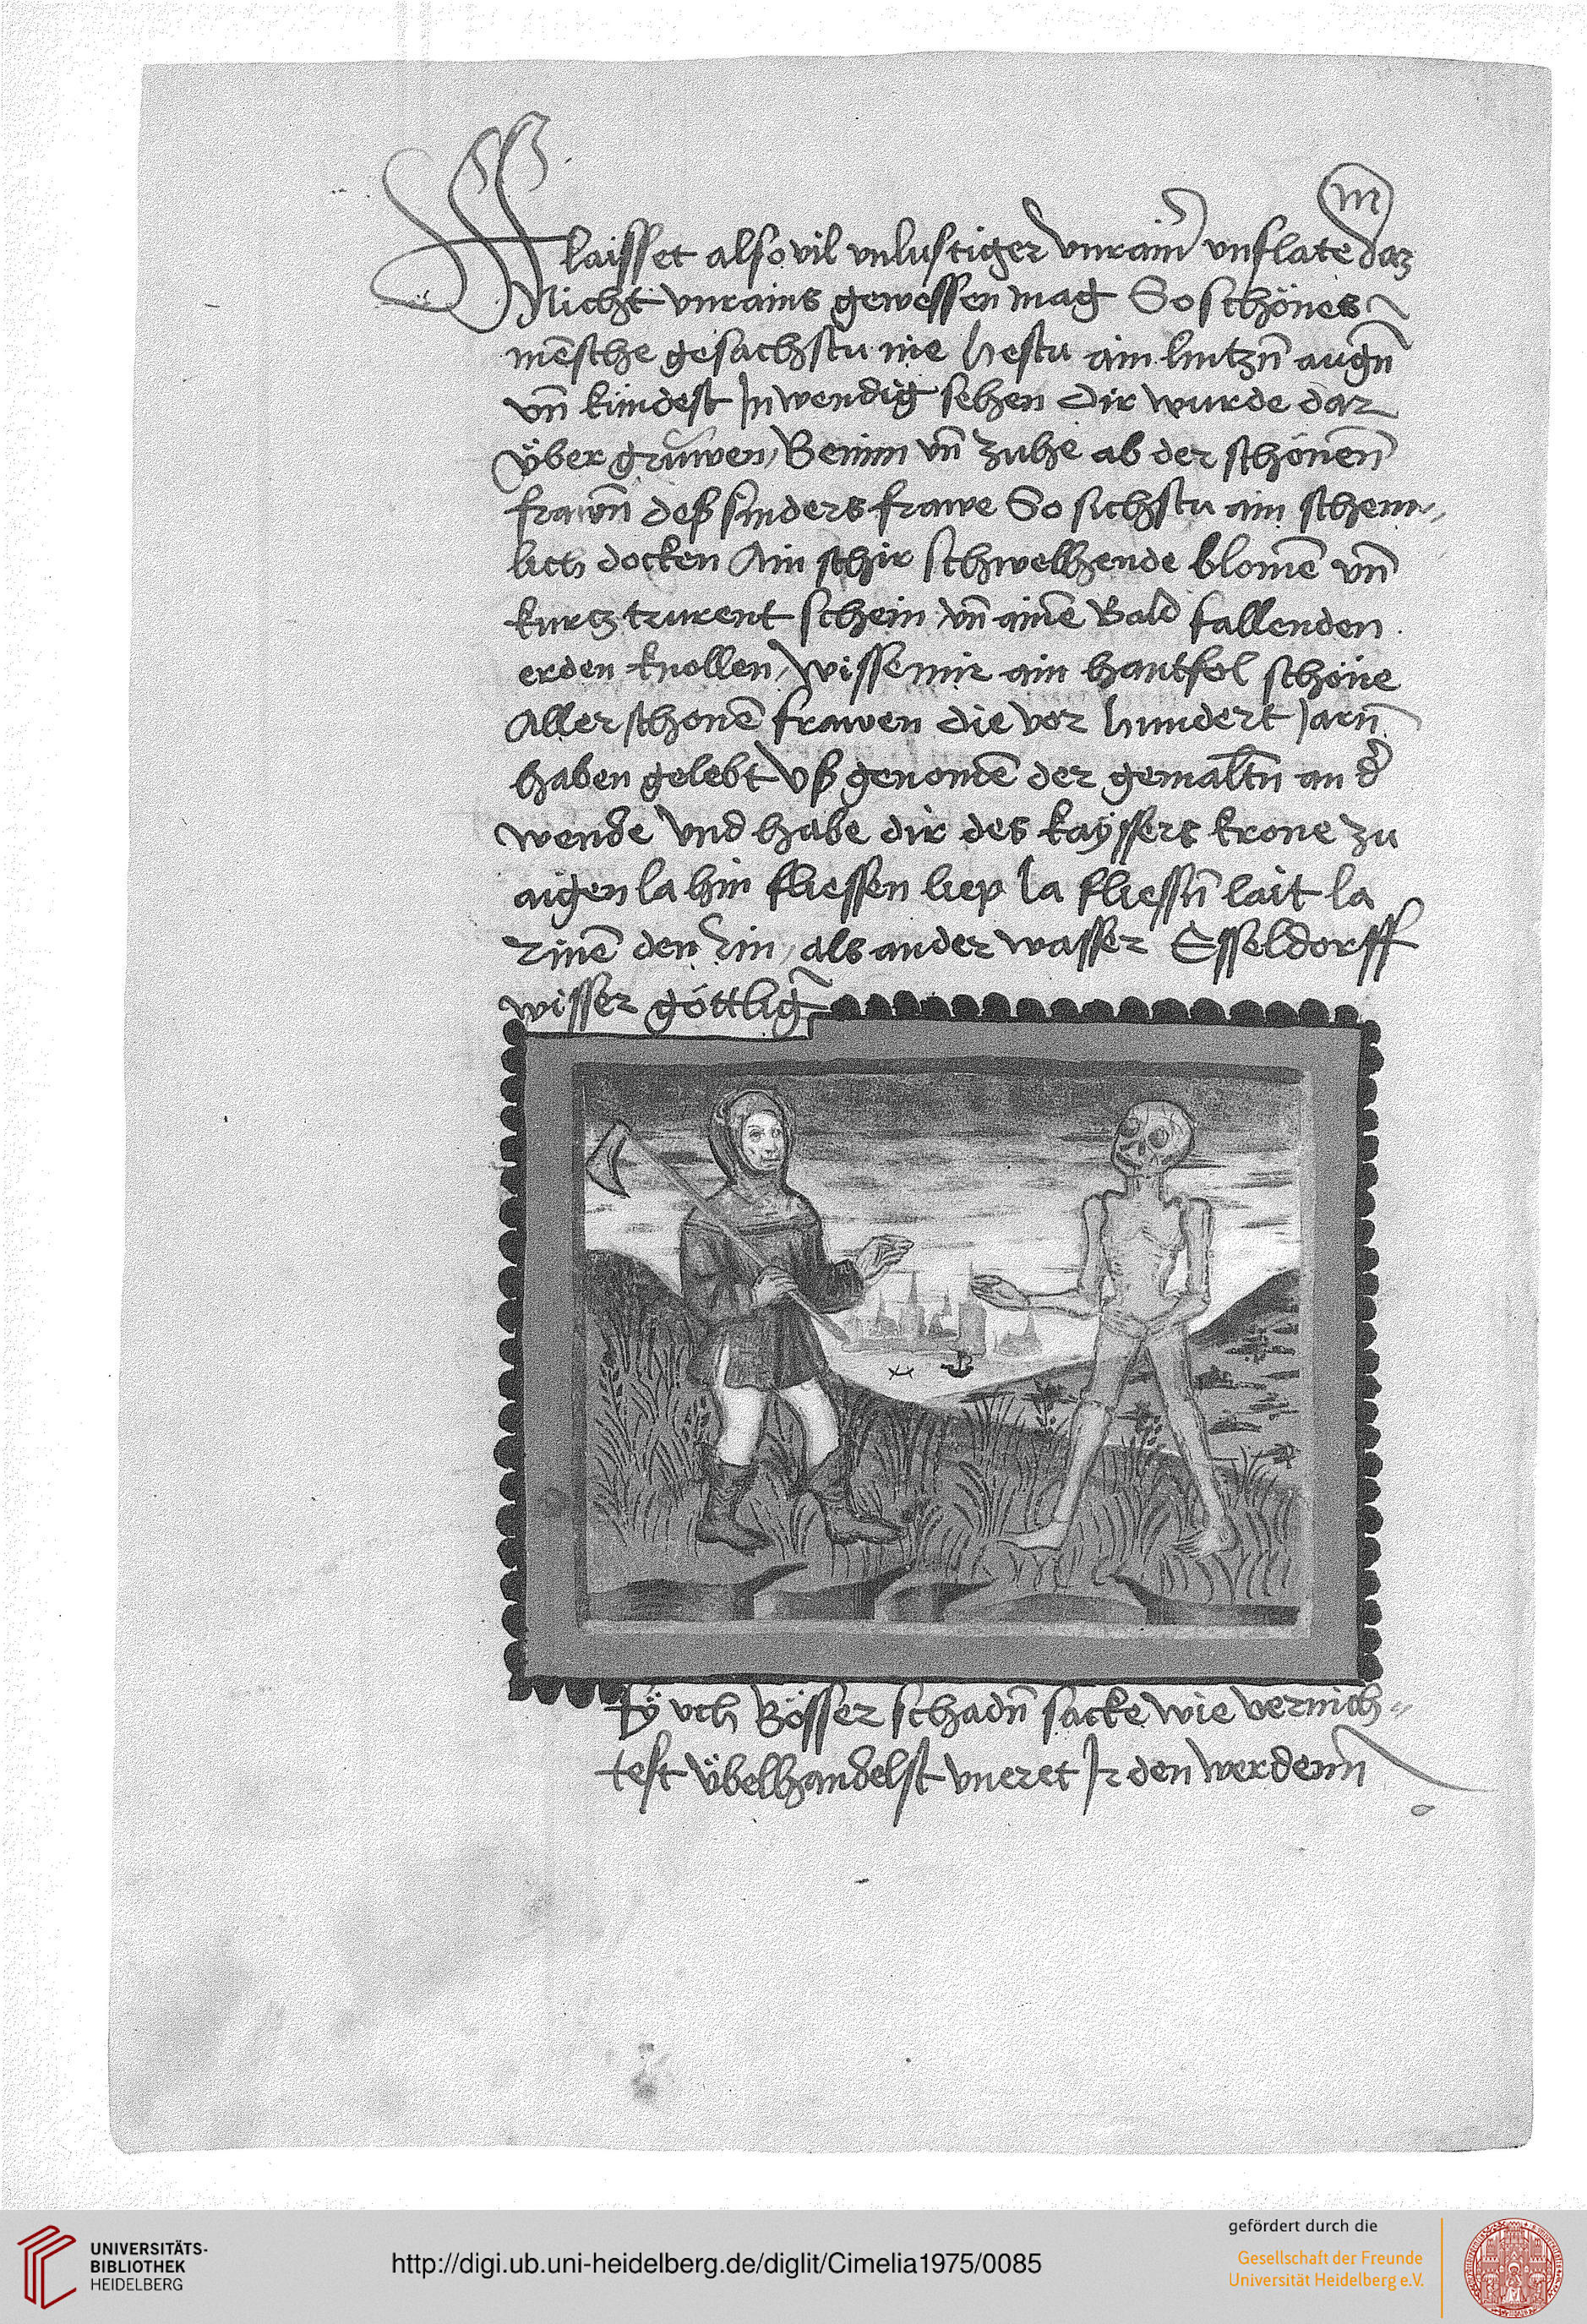 laisset also vil vnlustiger vnrain̄ vnflate daz
Nicht vnrains gewessen mag So schönes
mēsche gesachstu nie hestu ain lintzn̄ augn̄
vn̄ kündest Inwendig sehen dir wurde dar
über gruwen, Benim vn̄ zuhe ab der schönen̄
frawn̄ deß sinders frawe So sichstu ain schem„
lich docken Ain schir schwelhende blomē vn̄
kurtz turent schein vn̄ ainē Bald fallenden
erden knollen, wisse mir ain hantfol schöne
Aller schonē frawen die vor hundert Jarn̄
haben gelebt vß genomē der gemaltn̄ an d̄
wende vnd habe dir des kayssers krone zu
aigen la hin fliessen liep la fliessn̄ lait la
rinē den rin, als ander wasser Esseldorff
wisser göttliḡ
Fÿ uch Bösser schadn̄ sacke wie vernich„
test übelhandelst vneret Ir den werdenn
UNIVERSITÄTS-
BIBLIOTHEK
HEIDELBERG
http://digi.ub.uni-heidelberg.de/diglit/Cimelia1975/0085
gefördert durch die
Gesellschaft der Freunde
Universität Heidelberg e.V.